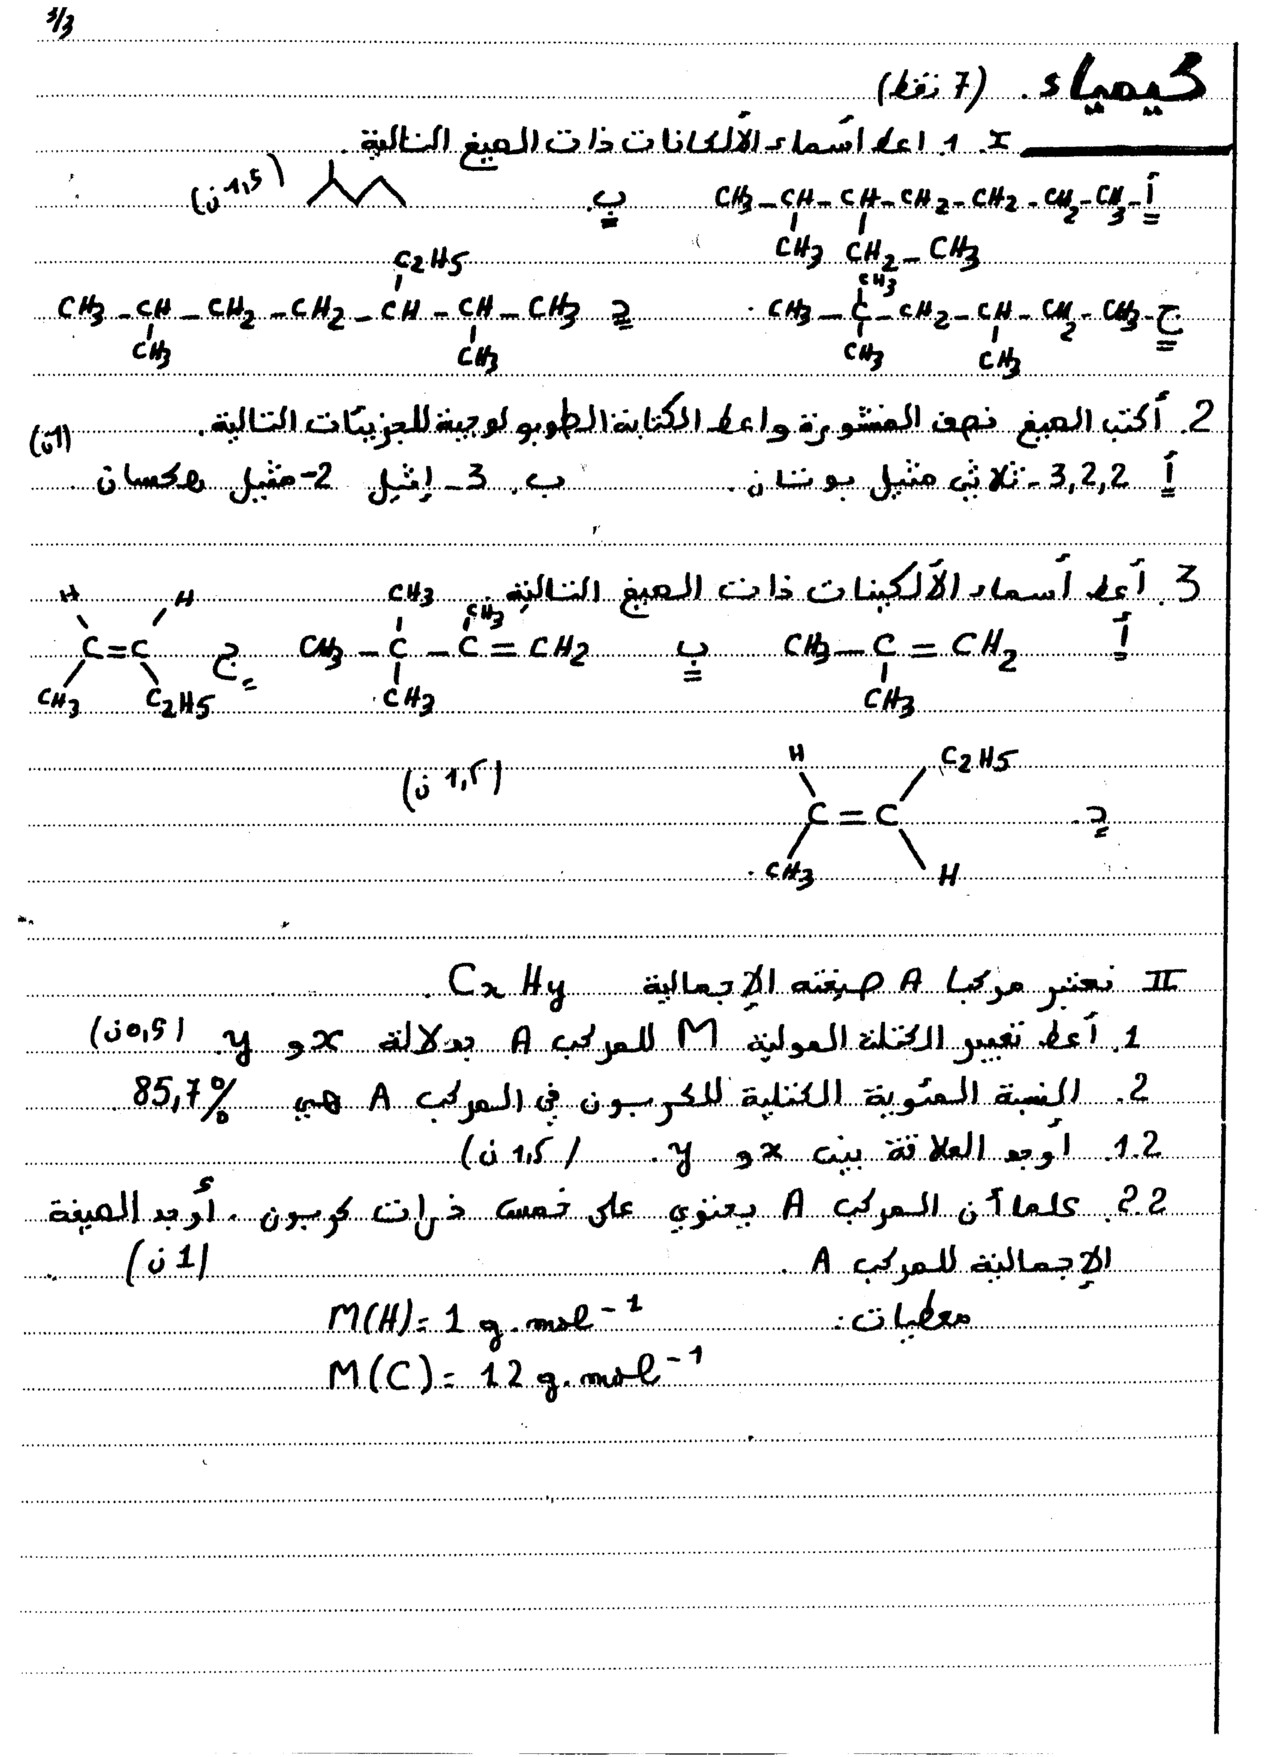 3/3
كيمياء. (7 نقط)
I. 1. اعط أسماء الألكانات ذات الصيغ التالية.
أ- CH3-CH-CH-CH2-CH2-CH2-CH3 ب. (1,5 ن)
CH3 CH2-CH3
C2H5
CH3
ج- CH3-C-CH2-CH-CH2-CH3 د CH3-CH-CH2-CH2-CH-CH-CH3
CH3 CH3 CH3 CH3
2. أكتب الصيغ نصف المنشورة واعط الكتابة الطوبولوجية للجزيئات التالية. (1ن)
أ 3,2,2-ثلاثي مثيل بوتان. ب. 3-إثيل 2-مثيل هكسان.
3. أعط أسماء الألكينات ذات الصيغ التالية.
CH3 CH3 H H
أ CH3-C=CH2 ب CH3-C-C=CH2 ج. C=C
CH3 CH3 CH3 C2H5
H C2H5 (1,5 ن)
د. C=C
CH3 H
II نعتبر مركبا A صيغته الإجمالية CxHy.
1. أعط تعبير الكتلة المولية M للمركب A بدلالة x و y. (0,5ن)
2. النسبة المئوية الكتلية للكربون في المركب A هي 85,7%.
1.2. أوجد العلاقة بين x و y. (1,5 ن)
2.2. علما أن المركب A يحتوي على خمس ذرات كربون. أوجد الصيغة
الإجمالية للمركب A. (1 ن)
معطيات: M(H)= 1 g.mol-1
M(C)= 12 g.mol-1